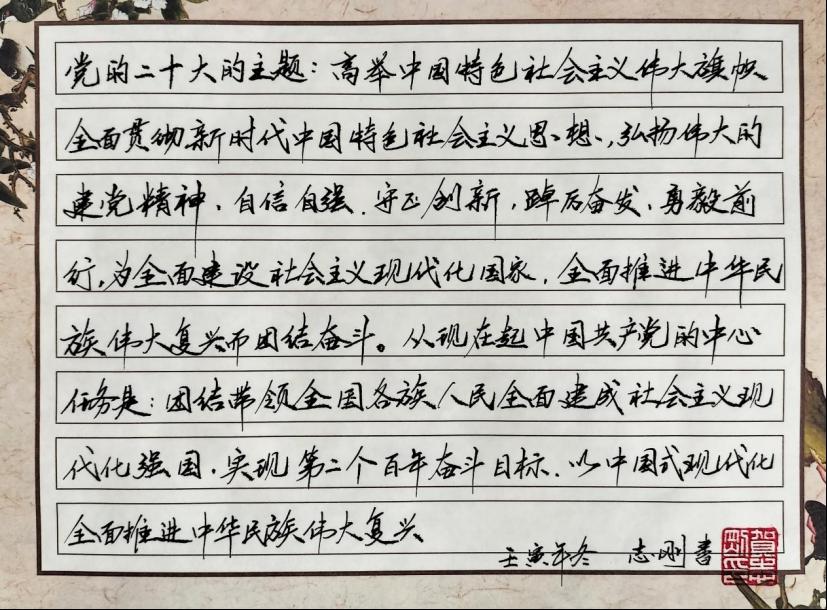 党的二十大的主题：高举中国特色社会主义伟大旗帜、
全面贯彻新时代中国特色社会主义思想，弘扬伟大的
建党精神、自信自强、守正创新，踔厉奋发、勇毅前
行，为全面建设社会主义现代化国家，全面推进中华民
族伟大复兴而团结奋斗。从现在起中国共产党的中心
任务是：团结带领全国各族人民全面建成社会主义现
代化强国、实现第二个百年奋斗目标、以中国式现代化
全面推进中华民族伟大复兴
壬寅年冬 志刚书